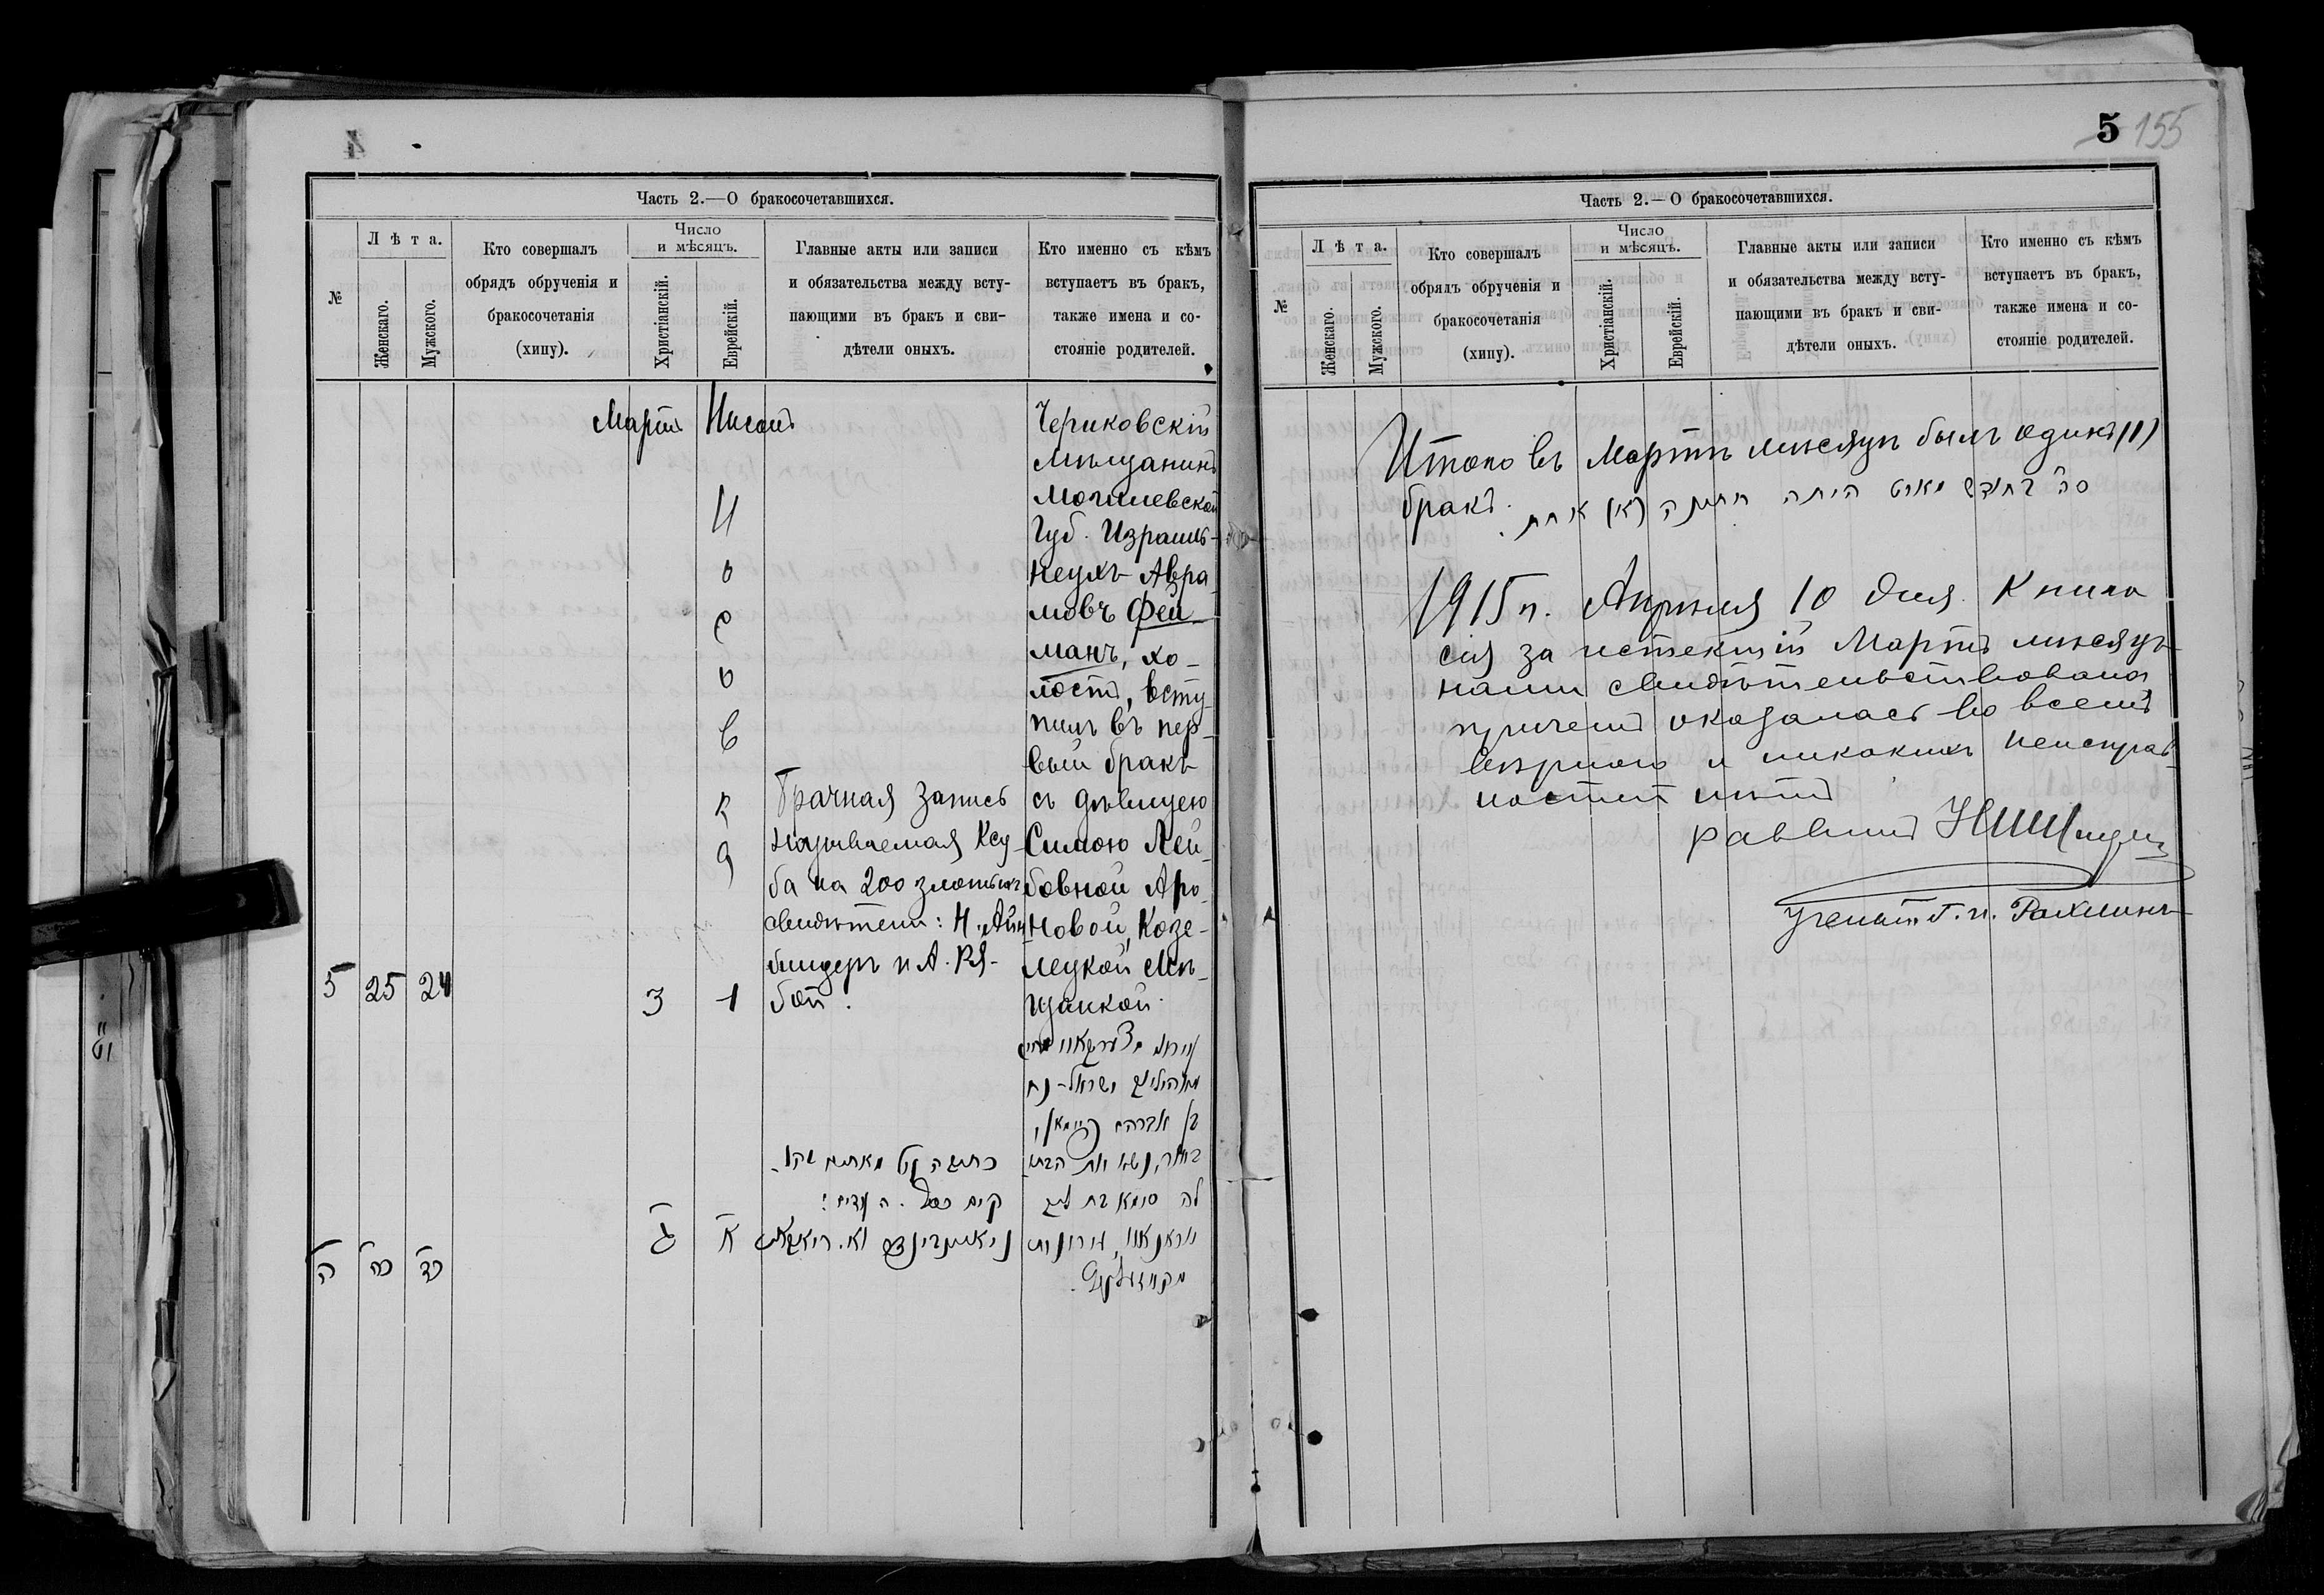 4
Часть 2.—О бракосочетавшихся.
№
Лѣта.
Женскаго.
Мужского.
Кто совершалъ
обрядъ обрученія и
бракосочетанія
(хипу).
Число
и мѣсяцъ.
Христіанскій.
Еврейскій.
Главные акты или записи
и обязательства между всту-
пающими въ бракъ и сви-
дѣтели оныхъ.
Кто именно съ кѣмъ
вступаетъ въ бракъ,
также имена и со-
стояніе родителей.
Мартъ Нисонъ
5 25 24
3 1
Брачная запись
называемая Ксу-
ба на 200 злотыхъ
свидѣтели: Н. Айн-
биндеръ и А. Ря-
бой.
Чериковскій
мѣщанинъ
Могилевской
Губ. Израиль-
Неухъ Авра-
мовъ Фей-
манъ, хо-
лостъ, всту-
пилъ въ пер-
вый бракъ
съ дѣвицею
Симою Лей-
бовной Аро-
новой, Козе-
лецкой мѣ-
щанкой.
ה כה כד
ג א
כתובה על מאתים זהו-
קים כסף. העדים:
בן אברהם פיימאן,
5 155
Часть 2.—О бракосочетавшихся.
№
Лѣта.
Женскаго.
Мужского.
Кто совершалъ
обрядъ обрученія и
бракосочетанія
(хипу).
Число
и мѣсяцъ.
Христіанскій.
Еврейскій.
Главные акты или записи
и обязательства между всту-
пающими въ бракъ и сви-
дѣтели оныхъ.
Кто именно съ кѣмъ
вступаетъ въ бракъ,
также имена и со-
стояніе родителей.
Итого въ Мартѣ мѣсяцѣ былъ одинъ (1)
бракъ.
סה בחודש מארט היתה חתונה (א) אחת.
1915 г. Апрѣля 10 дня. Книга
сія за истекшій Мартъ мѣсяцъ
нами свидѣтельствована
причемъ оказалась во всемъ
вѣрною и никакихъ неисправ-
ностей нѣтъ
раввинъ
Ученый Рахлинъ